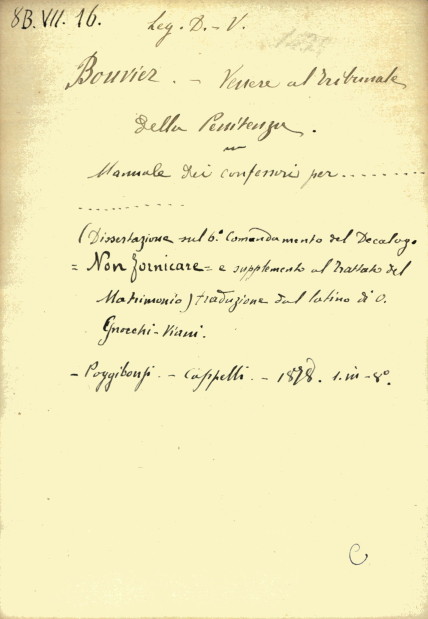 8B. VII. 16.
Leg. D. - V.
Bouvier. - Venere al tribunale
della Penitenza.
Manuale dei confessori per..........
...............
(Dissertazione sul 6° Comandamento del Decalogo
= Non fornicare = e supplemento al trattato del
Matrimonio) traduzione dal latino di O.
Gnocchi-Viani.
- Poggibonsi. - Cappelli. - 1878. 1. in - 8°.
C